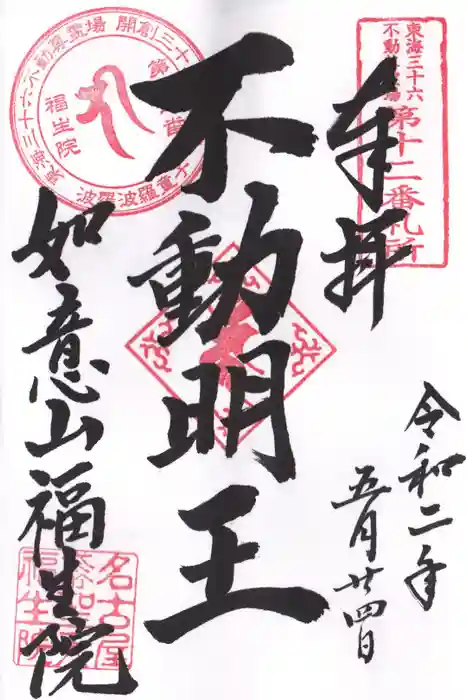 東海三十六
不動尊霊場
第十二番札所
奉拝
令和二年
五月廿四日
不動明王
東海三十六不動尊霊場 開創三十
福生院
波羅波羅童子
如意山福生院
名古屋
福生院